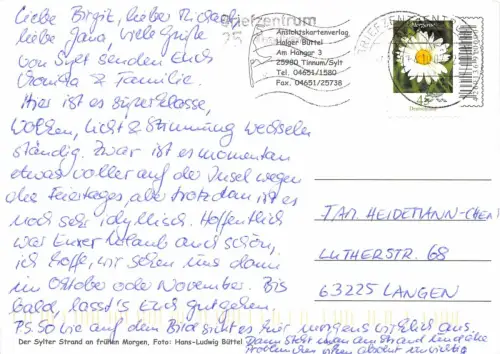 Liebe Birgit, lieber Michael,
liebe Jana, viele Grüße
von Sylt senden Euch
& Familie.
Hier ist es superklasse,
Wolken, Licht & Stimmung wechseln
ständig. Zwar ist es momentan
etwas voller auf der Insel wegen
der Feiertage, aber trotzdem ist es
noch sehr idyllisch. Hoffentlich
war Euer Urlaub auch schön,
ich hoffe, wir sehen uns dann
im Oktober oder November. Bis
bald, lasst's Euch gutgehen
P.S. So wie auf dem Bild sieht es hier morgens wirklich aus.
Dann steht man am Strand und die
Probleme
Der Sylter Strand am frühen Morgen, Foto: Hans-Ludwig Büttel
Briefzentrum
25
Ansichtskartenverlag
Holger Büttel
Am Hangar 3
25980 Tinnum/Sylt
Tel. 04651/1580
Fax. 04651/25738
BRIEFZENTRUM
Margerite
45
Deutschland
FAM. HEIDEMANN-
LUTHERSTR. 68
63225 LANGEN